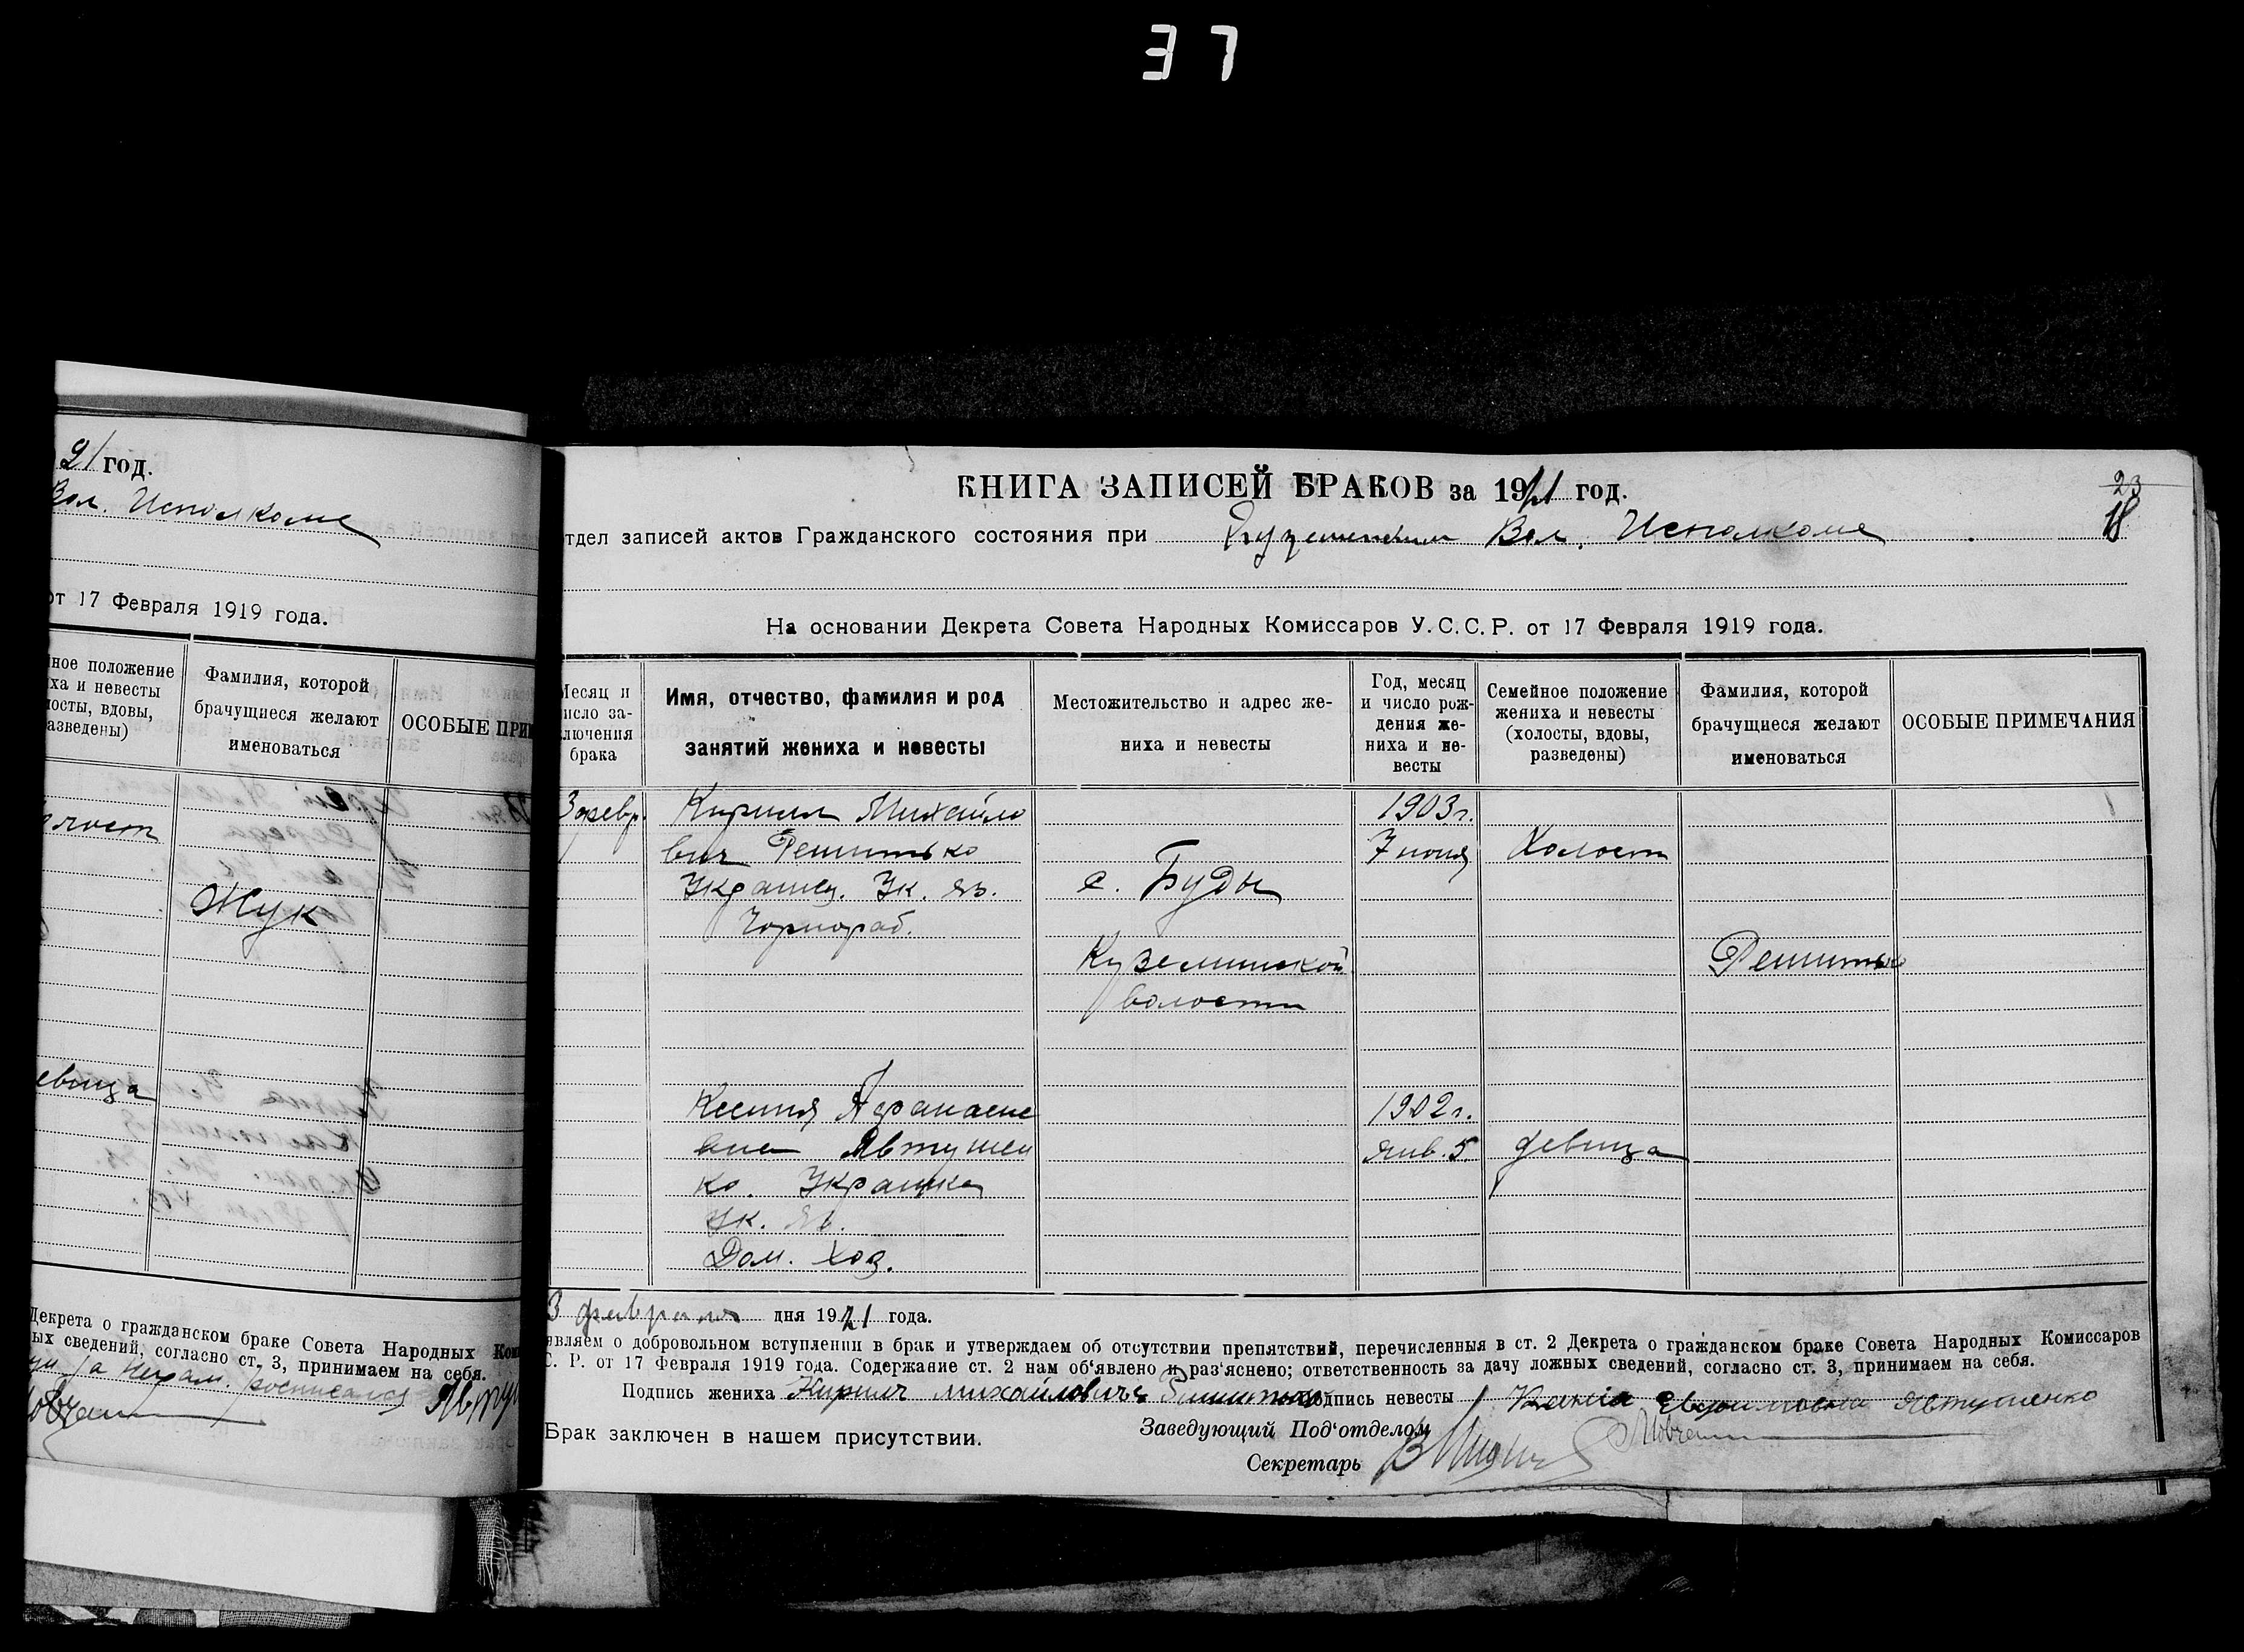 37
21 год.
Вол. Исполкоме
от 17 Февраля 1919 года.
ное положение
ха и невесты
лосты, вдовы,
азведены)
Фамилия, которой
брачущиеся желают
именоваться
ОСОБЫЕ ПРИ
лост
Жук
евица
Декрета о гражданском браке Совета Народных Ком
ых сведений, согласно ст. 3, принимаем на себя.
КНИГА ЗАПИСЕЙ БРАКОВ за 1921 год.
23
18
тдел записей актов Гражданского состояния при Куземинском Вол. Исполкоме
На основании Декрета Совета Народных Комиссаров У.С.С.Р. от 17 Февраля 1919 года.
Месяц и
исло за-
лючения
брака
Имя, отчество, фамилия и род
занятий жениха и невесты
Местожительство и адрес же-
ниха и невесты
Год, месяц
и число рож-
дения же-
ниха и не-
весты
Семейное положение
жениха и невесты
(холосты, вдовы,
разведены)
Фамилия, которой
брачущиеся желают
именоваться
ОСОБЫЕ ПРИМЕЧАНИЯ
3 февр. Кирилл Михайло 1903 г.
вич Решитько 7 июня Холост
Украинец. Ук. яз. с. Буды
Чернораб.
Куземинской Решитько
волости
Ксения Афанасие 1902 г.
вна Явтушен янв. 5 девица
ко. Украинка
Ук. яз.
Дом. хоз.
3 февраля дня 1921 года.
являем о добровольном вступлении в брак и утверждаем об отсутствии препятствий, перечисленныя в ст. 2 Декрета о гражданском браке Совета Народных Комиссаров
С. Р. от 17 Февраля 1919 года. Содержание ст. 2 нам об'явлено и раз'яснено; ответственность за дачу ложных сведений, согласно ст. 3, принимаем на себя.
Подпись жениха Кирилъ Михайловичъ Подпись невесты Явтушенко
Брак заключен в нашем присутствии.
Заведующий Под'отделом
Секретарь